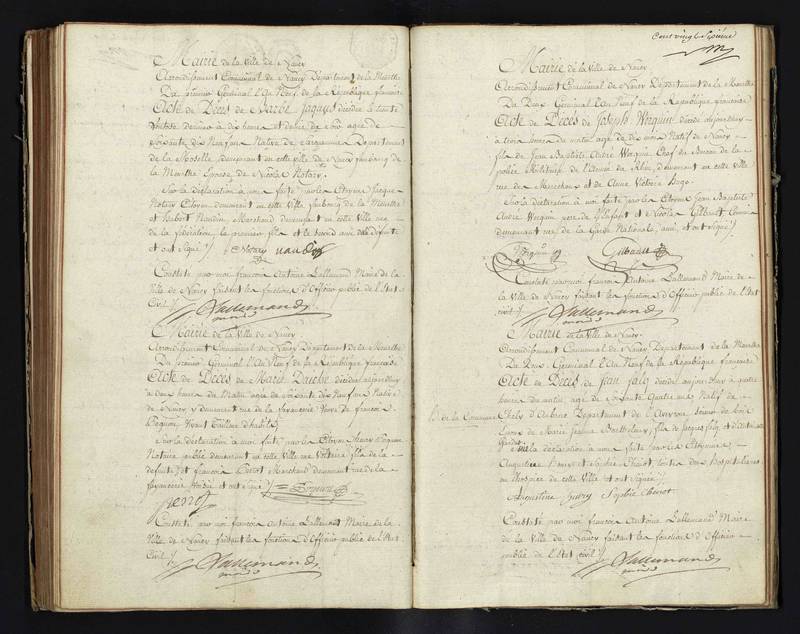 Mairie de la Ville de Nancy
Arrondissement Communal de Nancy Département de la Meurthe
Du premier Germinal l'An Neuf de la République française
Acte de Décès de Barbe Jaques décédée le trente
Ventôse dernier à dix heures et demie du soir agée de
soixante dix Neuf ans Native de Département
de la Moselle, demeurant en cette ville de Nancy faubourg de
la Meurthe Epouse de Nicolas Notary.
Sur la déclaration à moi faite par les Citoyens Jacque
Notary Citoyen demeurant en cette Ville faubourg de la Meurthe
et Hubert Marchand demeurant en cette Ville rue
de la fédération, le premier fils et le second ami de la défunte
et ont signé /. Notary
Constaté par moi françois Antoine Lallemand Maire de la
Ville de Nancy faisant les fonctions d'Officier public de l'Etat
Civil /.
Lallemand
Mairie de la Ville de Nancy
Arrondissement Communal de Nancy Département de la Meurthe
Du premier Germinal l'An Neuf de la République française
Acte de Décès de Marie décédée aujourd'huy
à deux heures du Matin agée de soixante dix Neuf ans Native
de Nancy y demeurant rue de la fayancerie Veuve de françois
Pequin Vivant Tailleur d'habits
Sur la déclaration à moi faite par les Citoyens Henry Pequin
Notaire public demeurant en cette Ville rue Voltaire fils de la
defunte, et françois Marchand demeurant rue de la
fayancerie et ont signé /.
Constaté par moi françois Antoine Lallemand Maire de la
Ville de Nancy faisant les fonctions d'Officier public de l'Etat
Civil /.
Lallemand
Cent vingt Septieme
Mairie de la Ville de Nancy
Arrondissement Communal de Nancy Département de la Meurthe
Du Deux Germinal l'An Neuf de la République française
Acte de Décès de Joseph Werquin décédé aujourd'huy
à trois heures du matin agé de dix mois Natif de Nancy
fils de Jean Baptiste André Werquin Chef du Bureau de la
police Militaire de l'Armée du Rhin, demeurant en cette Ville
rue des Marechaux et de Anne Victoire
Sur la déclaration à moi faite par les Citoyens Jean Baptiste
André Werquin pere de l'Enfant et Nicolas
demeurant rue de la Garde Nationale, ami, et ont signé /.
Werquin
Constaté par moi françois Antoine Lallemand Maire de
la Ville de Nancy faisant les fonctions d'Officier public de l'Etat
civil /.
Lallemand
Mairie de la Ville de Nancy.
Arrondissement Communal de Nancy Département de la Meurthe
Du Deux Germinal l'An Neuf de la République française
Acte de Décès de Jean décédé aujourd'huy à quatre
heures du matin agé de soixante Quatre ans Natif de
de la Commune
d'Aubrac Département de l'Aveyron
de Marie Jeanne Barthelemy, fils de Jacques et d'Antoinette
Sur la déclaration à moi faite par les Citoyennes
Augustine et Sophie Thiriot, toutes deux Hospitalieres
en l'hospice de cette Ville et ont signées /.
Augustine Sophie Thiriot
Constaté par moi françois Antoine Lallemand Maire
de la Ville de Nancy faisant les fonctions d'Officier
public de l'Etat civil /.
Lallemand